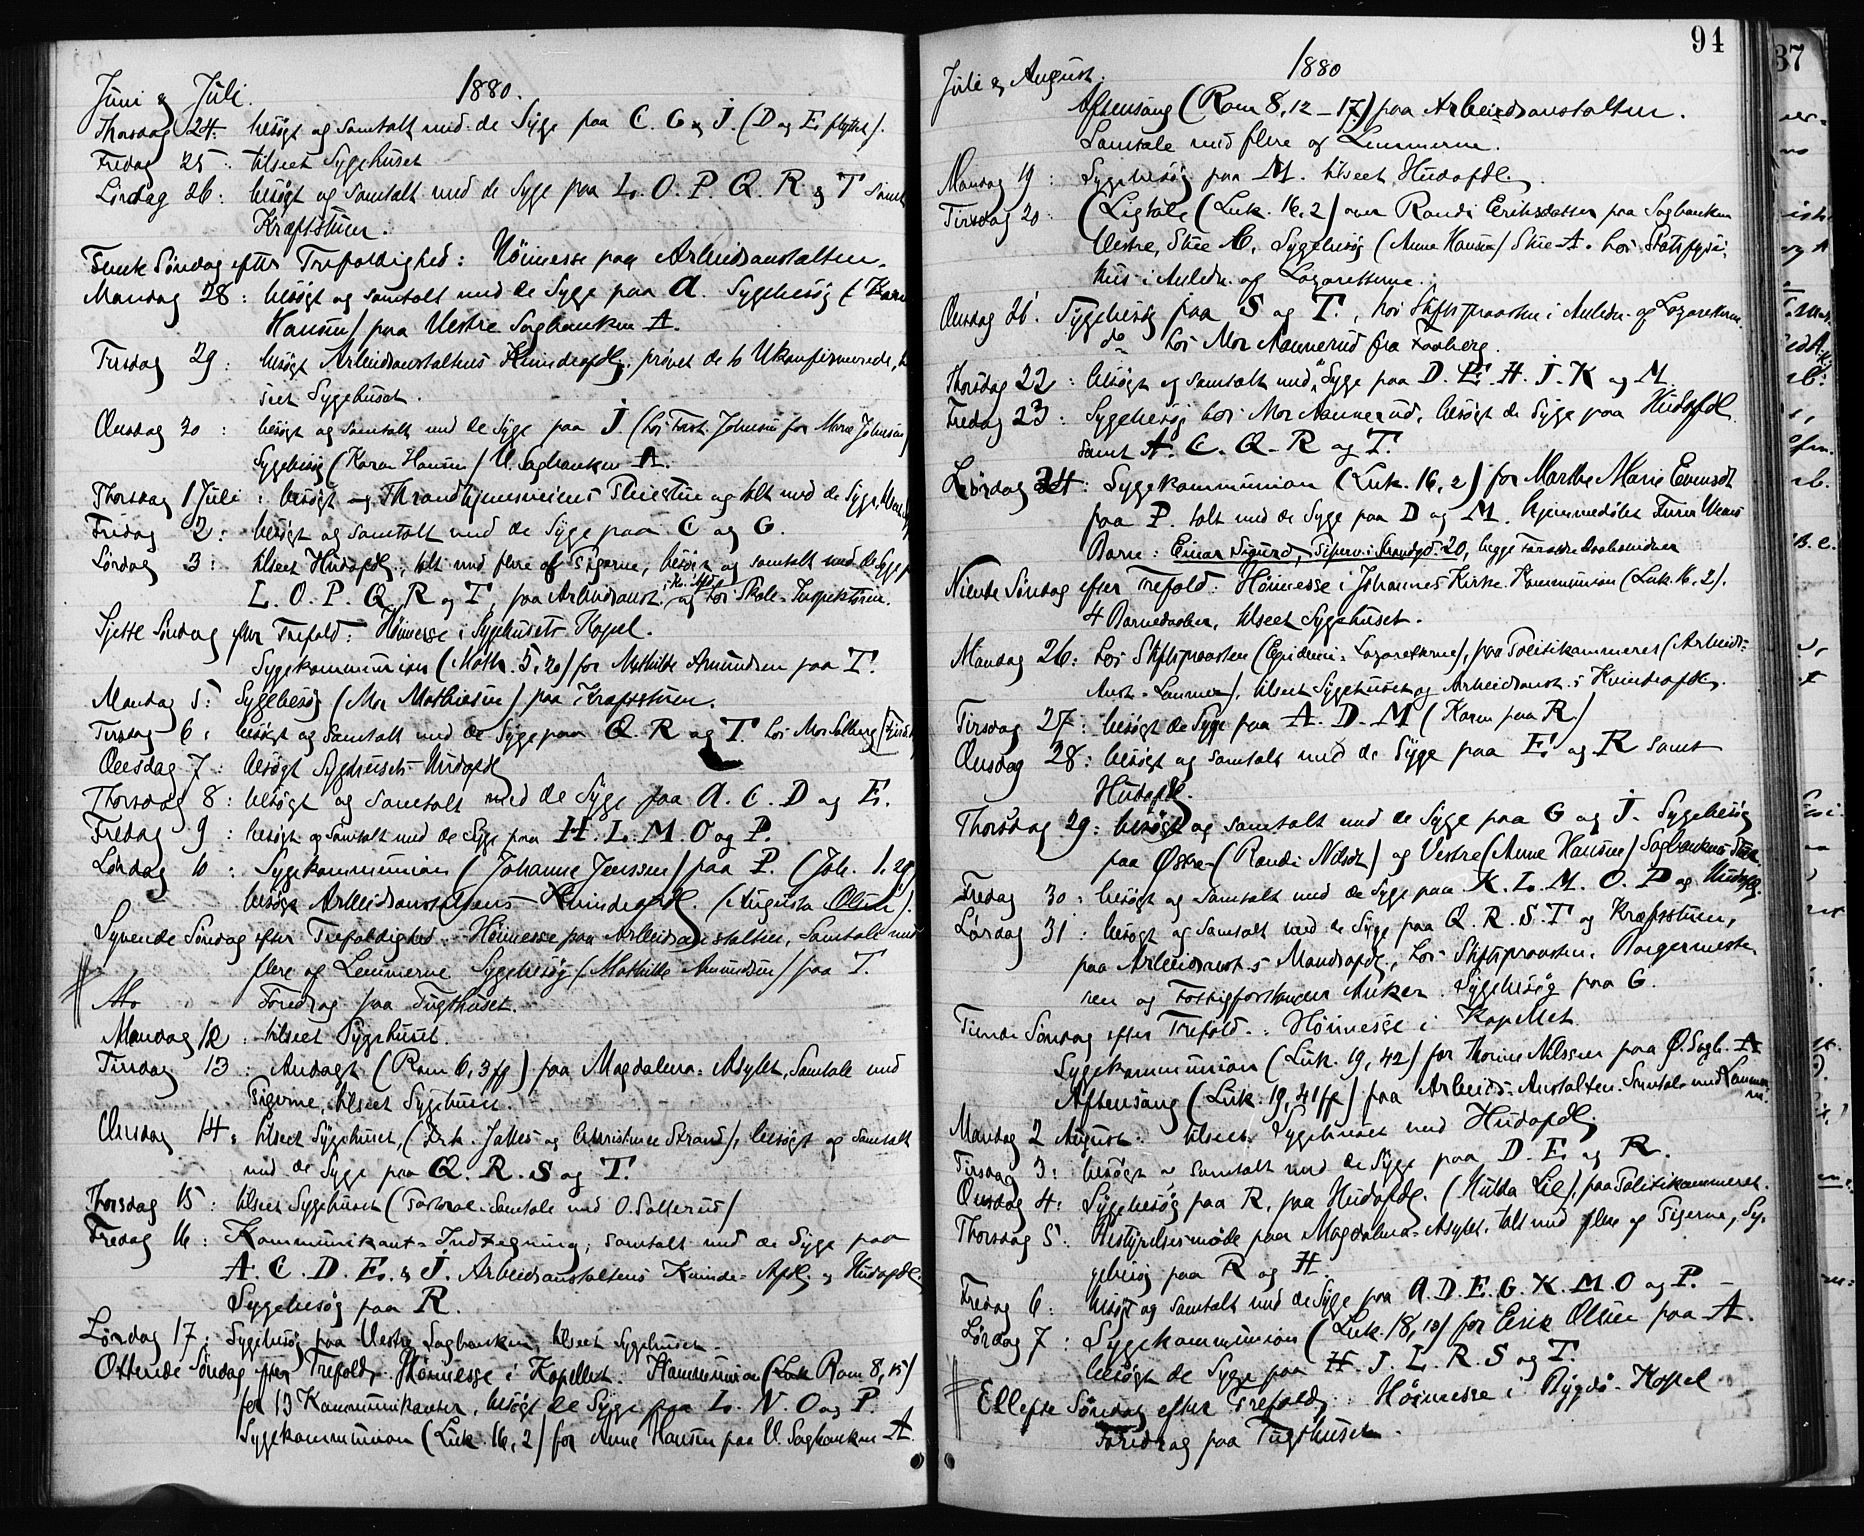 Juni & Juli. 1880.
Thorsdag 24. besøgt og samtalt med de Syge paa C. G & J. (D og E. flyttet).
Fredag 25: tilseet Sygehuset
Lørdag 26: besøgt og samtalt med de Syge paa L. O. P. Q. R & T samt
Kræftstuen.
Femte Søndag efter Trefoldighed: Høimesse paa Arbeidsanstalten.
Mandag 28: besøgt og samtalt med de Syge paa A. Sygebesøg (Karen
Hansen) paa Vestre Sagbanken A.
Tirsdag 29: besøgt Arbeidsanstaltens Kvindeafdl., prøvet de to Ukonfirmerede,
seet Sygehuset.
Onsdag 30: besøgt og samtalt med de Syge paa J (hos Fast. Johnsen for Marie Johnsen)
Sygebesøg (Karen Hansen) V. Sagbanken A.
Thorsdag 1 Juli: besøgt Throndhjemsveiens Pleiestue og talt med de Syge,
Fredag 2: besøgt og samtalt med de Syge paa C og G.
Lørdag 3: tilseet Hudafdl., talt med flere af Pigerne, besøgt og samtalt med de Syge paa
L. O. P. Q. R og T, paa Arbeidsanst. og hos Skole-Inspektøren.
Sjette Søndag efter Trefold: Høimesse i Sygehusets Kapel.
Sygekommunion (Math. 5, 20) for Mathilde Amundsen paa T.
Mandag 5: Sygebesøg (Mor Mathiesen) paa Kræftstuen.
Tirsdag 6: besøgt og samtalt med de Syge paa Q. R og T. hos Mor Solberg
Onsdag 7: besøgt Sygehusets Hudafdl
Thorsdag 8: besøgt og samtalt med de Syge paa A. C. D og E.
Fredag 9: besøgt og samtalt med de Syge paa H. L. M. O og P.
Lørdag 10: Sygekommunion (Johanne Jenssen) paa P. (Joh. 1. 29)
besøgt Arbeidsanstaltens Kvindeafdl. (Augusta Olsen).
Syvende Søndag efter Trefoldighed. Høimesse paa Arbeidsanstalten, Samtale med
flere af Lemmerne Sygebesøg (Mathilde Amundsen) paa T.
Foredrag paa Tugthuset.
Mandag 12: tilseet Sygehuset.
Tirsdag 13: Andagt (Rom 6, 3 ff) paa Magdalena-Asylet, Samtale med
Pigerne, tilseet Sygehuset.
Onsdag 14: tilseet Sygehuset, (Frk. Jakes og Christine Strand), besøgt og samtalt
med de Syge paa Q. R. S og T.
Thorsdag 15: tilseet Sygehuset (Pastoral-Samtale med O. Sollerud)
Fredag 16: Kommunikant-Indtegning, samtalt med de Syge paa
A. C. D. E. & J. Arbeidsanstaltens Kvinde-Afdl. & Hudafdl.
Sygebesøg paa R.
Lørdag 17: Sygebesøg paa Vestre Sagbanken, tilseet Sygehuset.
Ottende Søndag efter Trefold. Høimesse i Kapellet. Kommunion (Rom 8, 15)
for 13 Kommunikanter, besøgt de Syge paa L. N. O og P.
Sygekommunion (Luk. 16, 2) for Anne Hansen paa V. Sagbanken A.
94
Juli & August. 1880
Aftensang (Rom 8, 12–17) paa Arbeidsanstalten.
Samtale med flere af Lemmerne.
Mandag 19: Sygebesøg paa M. tilseet Hudafdl.
Tirsdag 20: (Ligtale (Luk. 16, 2) over Randi Eriksdatter paa Sagbanken
Vestre, Stue C, Sygebesøg (Anne Hansen) Stue A. hos Statsfysi-
kus i Anledn. af Lazaretterne.
Onsdag 21. Sygebesøg paa S og T., hos Stiftsprovsten i Anledn. af Lazaretterne.
do hos Mor Mannerud fra Faaberg.
Thorsdag 22: besøgt og samtalt med Syge paa D. E. H. J. K og M.
Fredag 23: Sygebesøg hos Mor Mannerud, besøgt de Syge paa Hudafdl.
samt A. C. Q. R og T.
Lørdag 24: Sygekommunion (Luk. 16, 2) for Marthe Marie Evensdt
paa P. talt med de Syge paa D og M. hjemmedøbt
Barn: Einar Sigurd, 20, begge
Niende Søndag efter Trefold. Høimesse i Johannes Kirke Kommunion (Luk. 16. 2).
4 Barnedaaber, tilseet Sygehuset.
Mandag 26: hos Stiftsprovsten (Epidemi-Lazaretterne), paa Politikammeret (Arbeids-
Anst.-Lemmer), tilseet Sygehuset og Arbeidsanst.s Kvindeafdl.
Tirsdag 27: besøgt de Syge paa A. D. M (Karen paa R.)
Onsdag 28: besøgt og samtalt med de Syge paa E. og R samt
Hudafdl.
Thorsdag 29: besøgt og samtalt med de Syge paa G og J. Sygebesøg
paa Østre (Randi Nilsdt) og Vestre (Anne Hansen) Sagbankens Stue
Fredag 30: besøgt og samtalt med de Syge paa K. L. M. O. P og Hudafdl.
Lørdag 31: besøgt og samtalt med de Syge paa Q. R. S. T og Kræftstuen,
paa Arbeidsanst.s Mandsafdl., hos Stiftsprovsten, Borgermeste-
ren og Fattigforstander Anker. Sygebesøg paa G.
Tiende Søndag efter Trefold.: Høimesse i Kapellet
Sygekommunion (Luk. 19, 42) for Thorine Nilssen paa Ø. Sagb. A
Aftensang (Luk. 19, 41 ff) paa Arbeids-Anstalten. Samtale med Lemmer-
ne.
Mandag 2 August. tilseet Sygehuset med Hudafdl.
Tirsdag 3: besøgt og samtalt med de Syge paa D. E. og R.
Onsdag 4: Sygebesøg paa R, paa Hudafdl. (Hulda Lie), paa Politikammeret.
Thorsdag 5: Bestyrelsesmøde paa Magdalena-Asylet, talt med flere af Pigerne, Sy-
gebesøg paa R og H.
Fredag 6: besøgt og samtalt med de Syge paa A. D. E. G. K. M. O og P.
Lørdag 7: Sygekommunion (Luk. 18, 13) for Erik Olsen paa A.
besøgt de Syge paa H. J. L. R. S og T.
Ellefte Søndag efter Trefold.: Høimesse i Bygdø-Kapel
Foredrag paa Tugthuset.